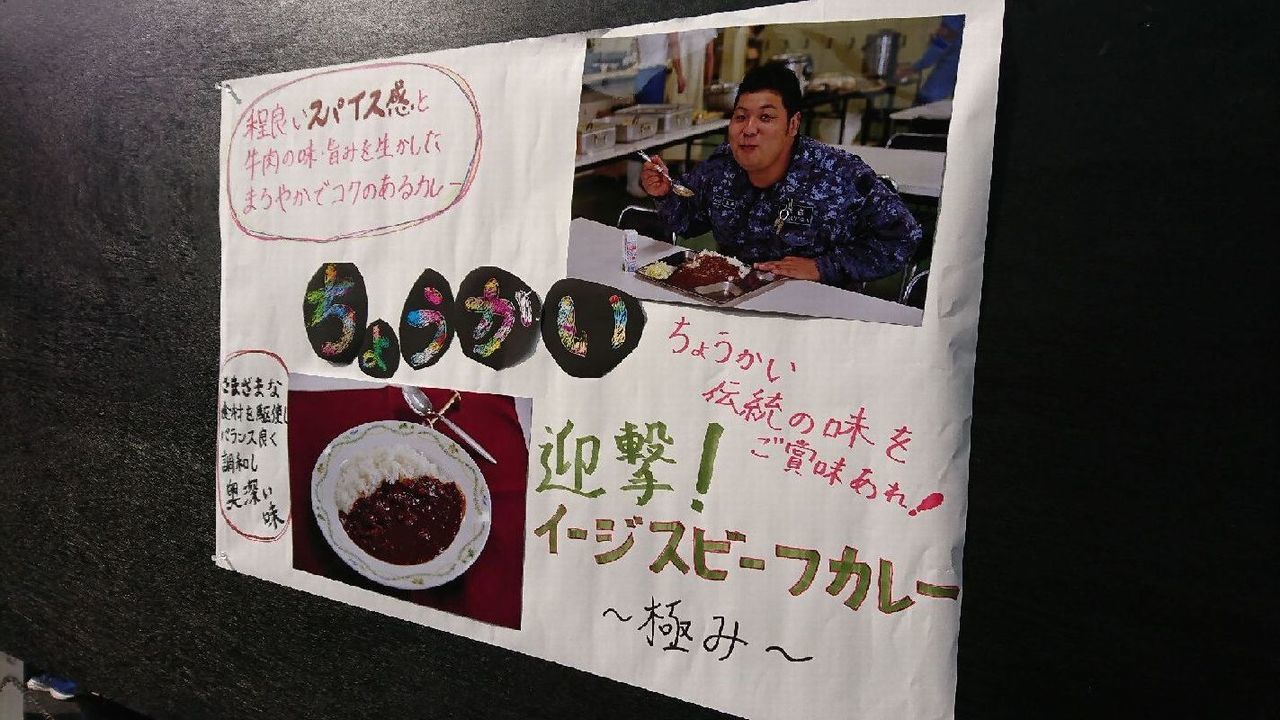 程良いスパイス感と
牛肉の味・旨みを生かした
まろやかでコクのあるカレー
ちょうかい
ちょうかい
伝統の味を
ご賞味あれ!
さまざまな
食材を駆使し
バランス良く
調和し
奥深い
味
迎撃!
イージスビーフカレー
〜極み〜